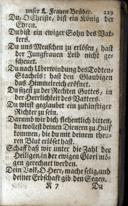 unser L. Frauen Brüder. 223
Du, O Christe, bist ein König der
Ehren.
Du bist ein ewiger Sohn des Vat-
ters.
Du uns Menschen zu erlösen, hast
der Jungfrauen Leib nicht ge-
scheuet.
Du nach Überwindung des Todten
Stachels: hast den Glaubigen
das Himmelreich eröfnet.
Du sizest zu der Rechten Gottes, in
der Herrlichkeit des Vatters.
Du wirst geglaubet ein zukünftiger
Richter zu seyn.
Darum wir dich flehentlich bitten,
du wollest deinen Dienern zu Hülf
kommen, die du mit deinem theu-
ren Blut erlöset hast.
Schaf daß wir unter die Zahl der
Heiligen, in der ewigen Glori mö-
gen gerechnet werden.
Dein Volk, O Herr, mache selig, und
dein Erbschaft gib den Segen.
K 7 Du